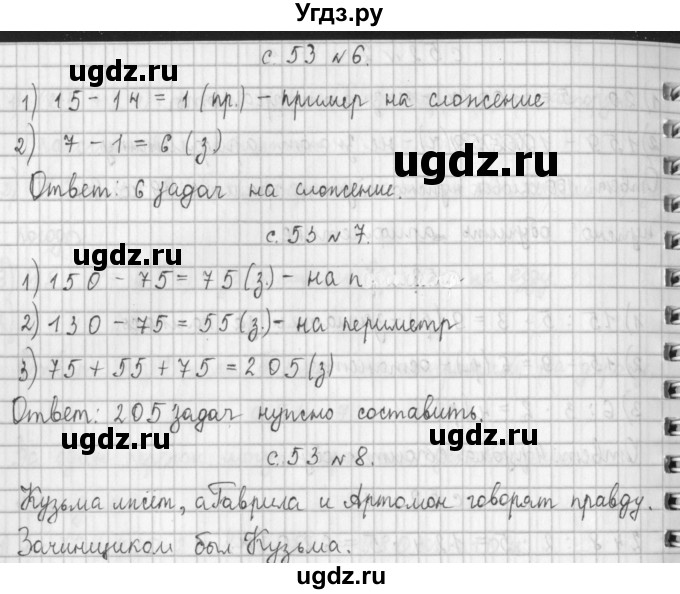 Угдз.ру
с. 53 №6.
ugdz.ru
1) 15 - 14 = 1 (пр.) - пример на сложение
2) 7 - 1 = 6 (з.)
ugdz.ru
Ответ: 6 задач на сложение.
с. 53 №7.
ugdz.ru
1) 150 - 75 = 75 (з.) - на п
2) 130 - 75 = 55 (з.) - на периметр
ugdz.ru
3) 75 + 55 + 75 = 205 (з)
Ответ: 205 задач нужно составить.
ugdz.ru
ugdz.ru
с. 53 №8.
Кузьма лжет, а Гаврила и Артомон говорят правду.
ugdz.ru
Зачинщиком был Кузьма.
ugdz.ru